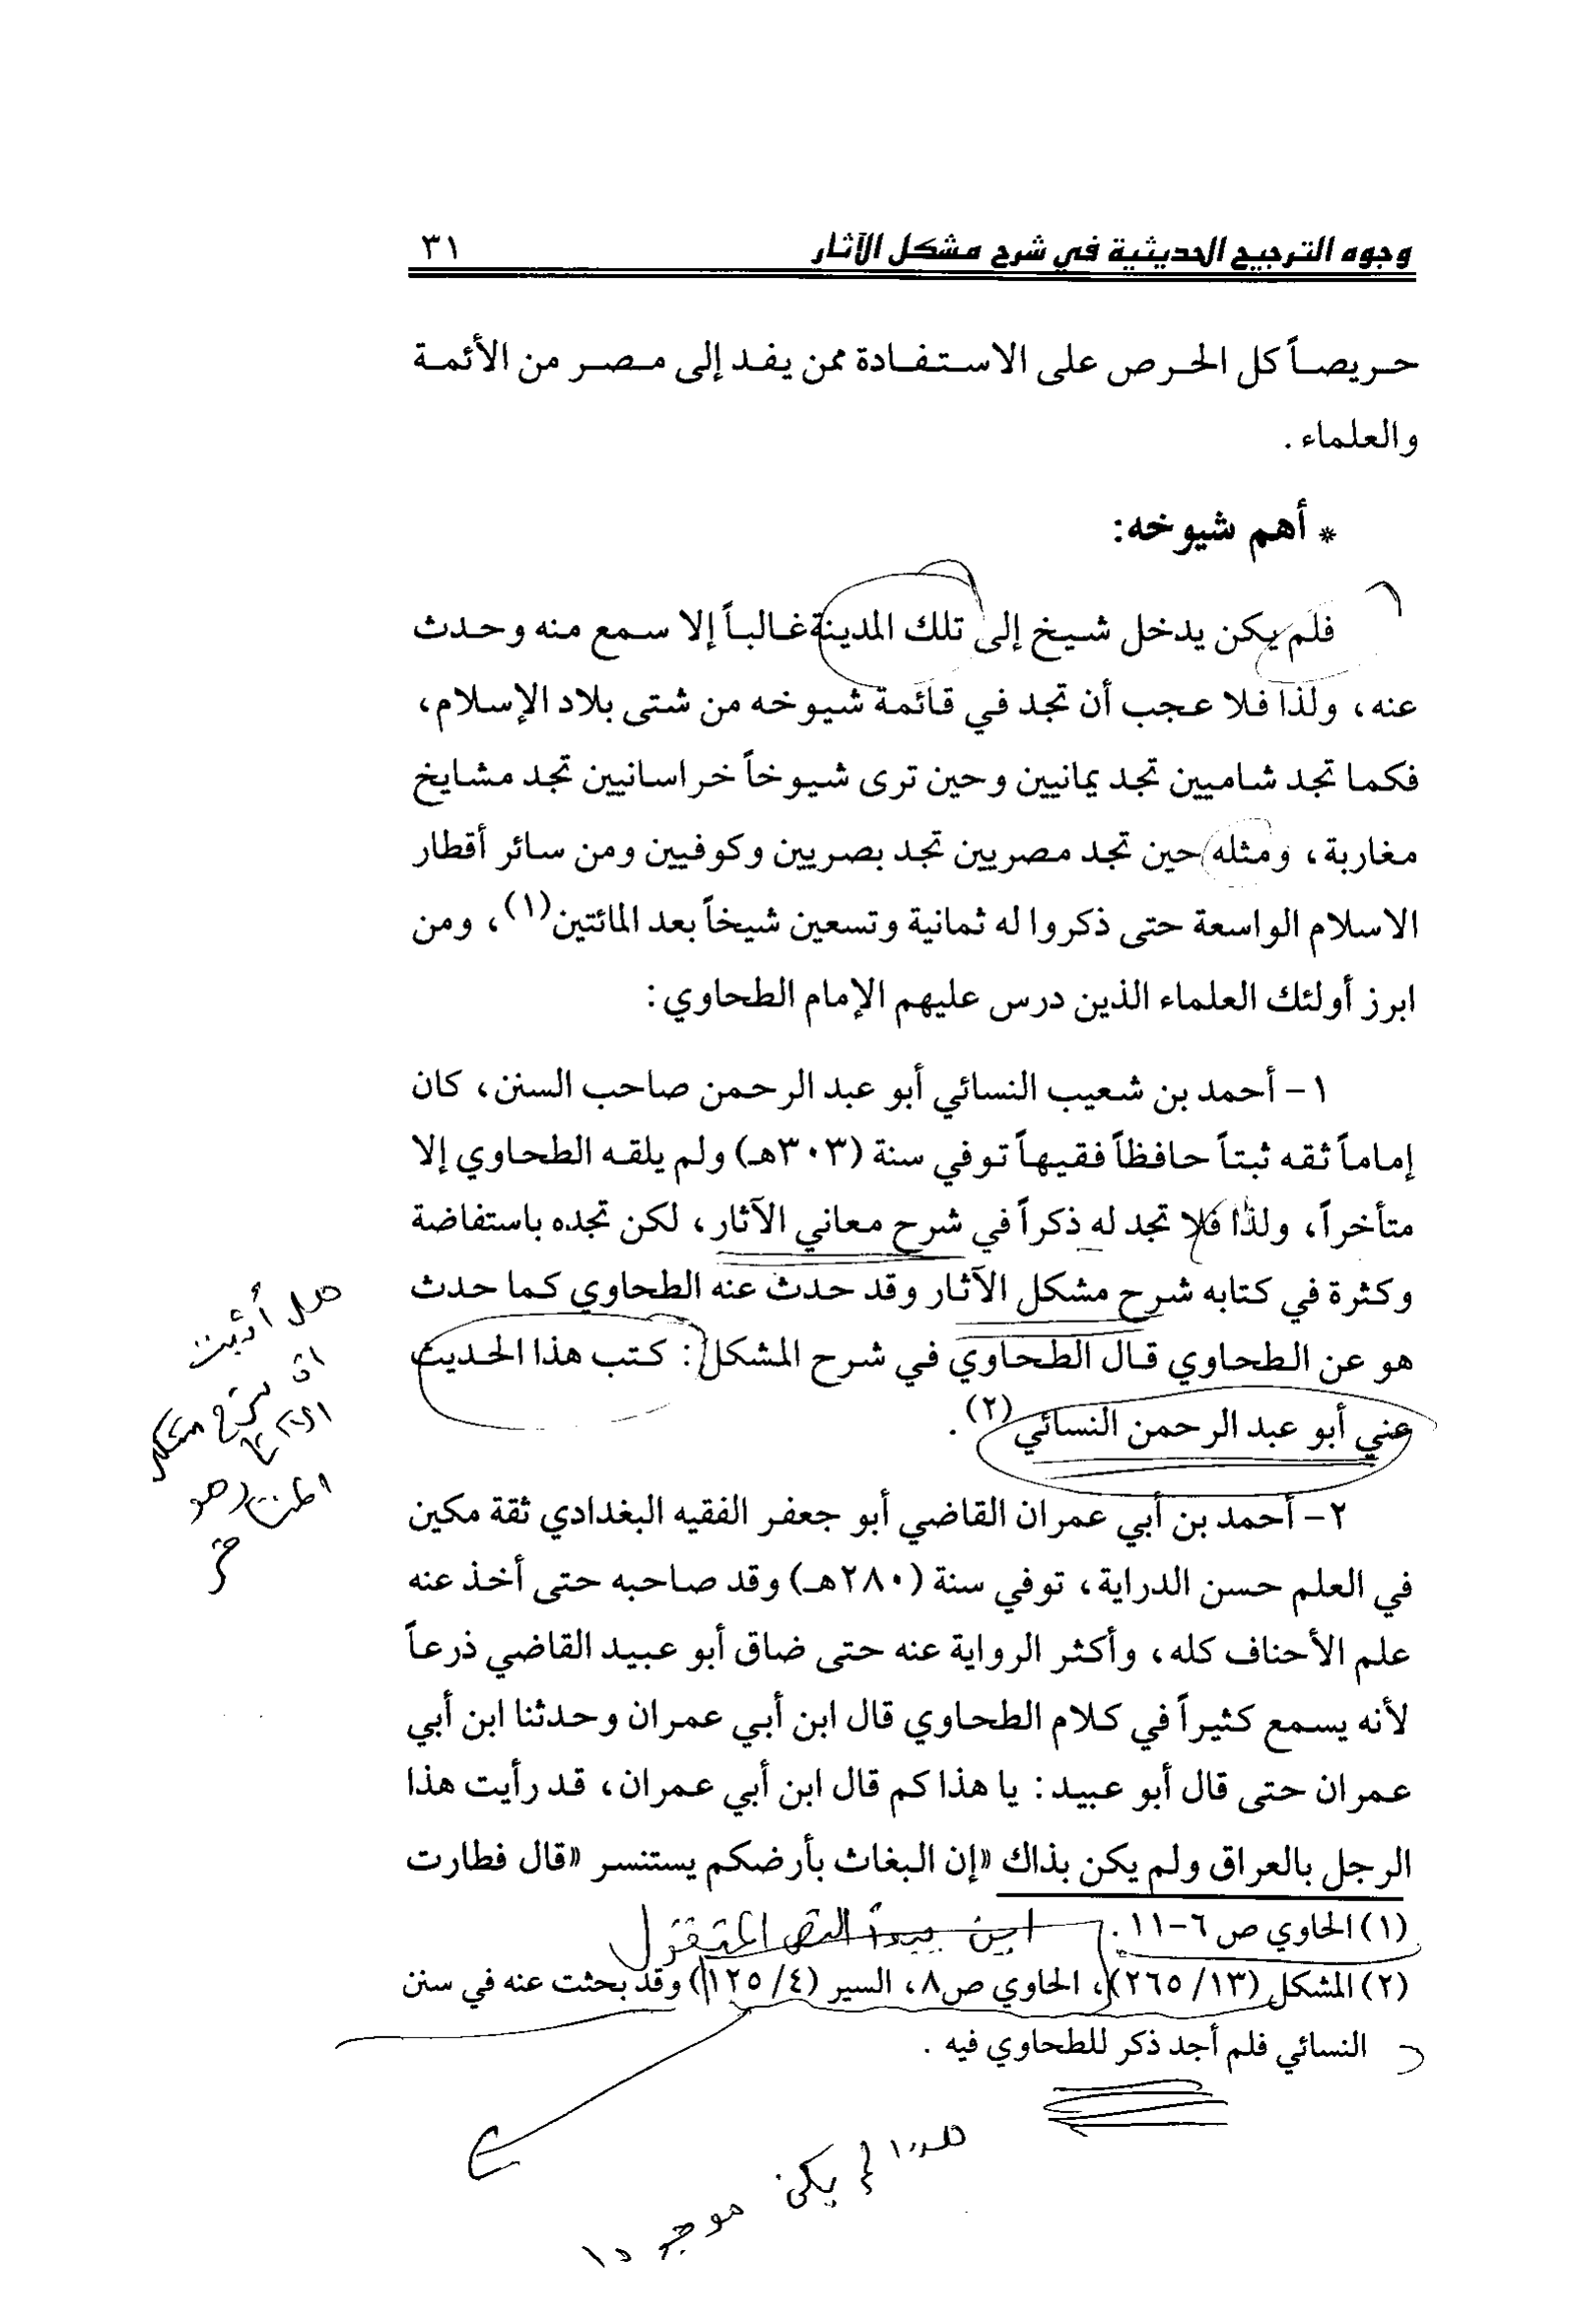 وجوه الترجيح الحديثية في شرح مشكل الآثار ٣١
حريصاً كل الحرص على الاستفادة ممن يفد إلى مصر من الأئمة
والعلماء .
* أهم شيوخه:
فلم يكن يدخل شيخ إلى تلك المدينة غالباً إلا سمع منه وحدث
عنه، ولذا فلا عجب أن تجد في قائمة شيوخه من شتى بلاد الإسلام،
فكما تجد شاميين تجد يمانيين وحين ترى شيوخاً خراسانيين تجد مشايخ
مغاربة، ومثله حين تجد مصريين تجد بصريين وكوفيين ومن سائر أقطار
الاسلام الواسعة حتى ذكروا له ثمانية وتسعين شيخاً بعد المائتين(١)، ومن
ابرز أولئك العلماء الذين درس عليهم الإمام الطحاوي:
١- أحمد بن شعيب النسائي أبو عبد الرحمن صاحب السنن، كان
إماماً ثقه ثبتاً حافظاً فقيهاً توفي سنة (٣٠٣هـ) ولم يلقه الطحاوي إلا
متأخراً، ولذا فلا تجد له ذكراً في شرح معاني الآثار، لكن تجده باستفاضة
وكثرة في كتابه شرح مشكل الآثار وقد حدث عنه الطحاوي كما حدث
هو عن الطحاوي قال الطحاوي في شرح المشكل: كتب هذا الحديث
عني أبو عبد الرحمن النسائي(٢).
هل أثبت
شرح مشكل
٢- أحمد بن أبي عمران القاضي أبو جعفر الفقيه البغدادي ثقة مكين
في العلم حسن الدراية، توفي سنة (٢٨٠هـ) وقد صاحبه حتى أخذ عنه
علم الأحناف كله، وأكثر الرواية عنه حتى ضاق أبو عبيد القاضي ذرعاً
لأنه يسمع كثيراً في كلام الطحاوي قال ابن أبي عمران وحدثنا ابن أبي
عمران حتى قال أبو عبيد: يا هذا كم قال ابن أبي عمران، قد رأيت هذا
الرجل بالعراق ولم يكن بذاك «إن البغاث بأرضكم يستنسر «قال فطارت
(١) الحاوي ص ٦-١١.
أين يبدأ النص المنقول
(٢) المشكل (١٣/ ٢٦٥)، الحاوي ص٨، السير (٤/ ١٢٥) وقد بحثت عنه في سنن
النسائي فلم أجد ذكر للطحاوي فيه .
هذا لم يكن موجودا